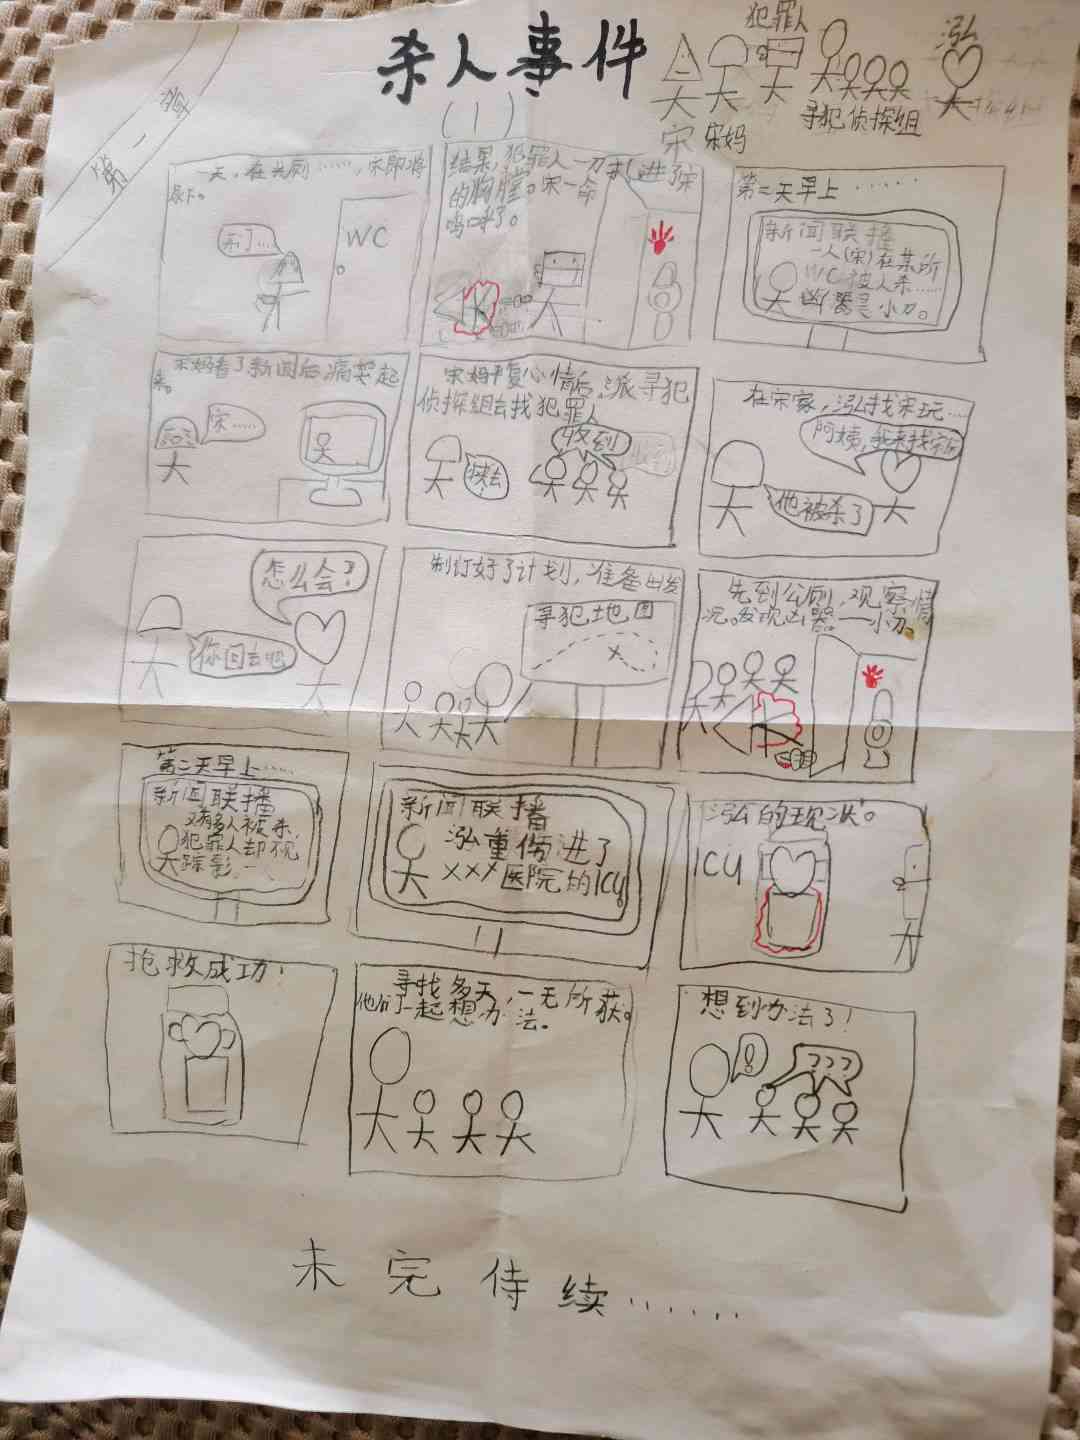 杀人事件
(1)
第一资
犯罪人
泓
宋
宋妈
寻犯侦探组
一天，在共厕……，宋即将
尿下。
来了…
WC
结果，犯罪人一刀扎进了宋
的胸膛。宋一命
呜呼了。
第二天早上……
新闻联播
一人(宋)在某所
WC被人杀……
凶器是小刀。
宋妈看了新闻后，痛哭起
来。
宋……
宋妈平复心情后，派寻犯
侦探组去找犯罪人
快去
收到
收到
在宋家，泓找宋玩……
阿姨，我来找宋玩
他被杀了
怎么会？
你回去吧
制订好了计划，准备出发
寻犯地图
先到公厕，观察情
况。发现凶器：一小刀。
第二天早上……
新闻联播
又有多人被杀，
犯罪人却不见
踪影。
新闻联播
泓重伤进了
XXX医院的ICU
泓的现状。
ICU
抢救成功！
寻找多天，一无所获。
他们一起想办法。
想到办法了！
！
？？？
未完待续……